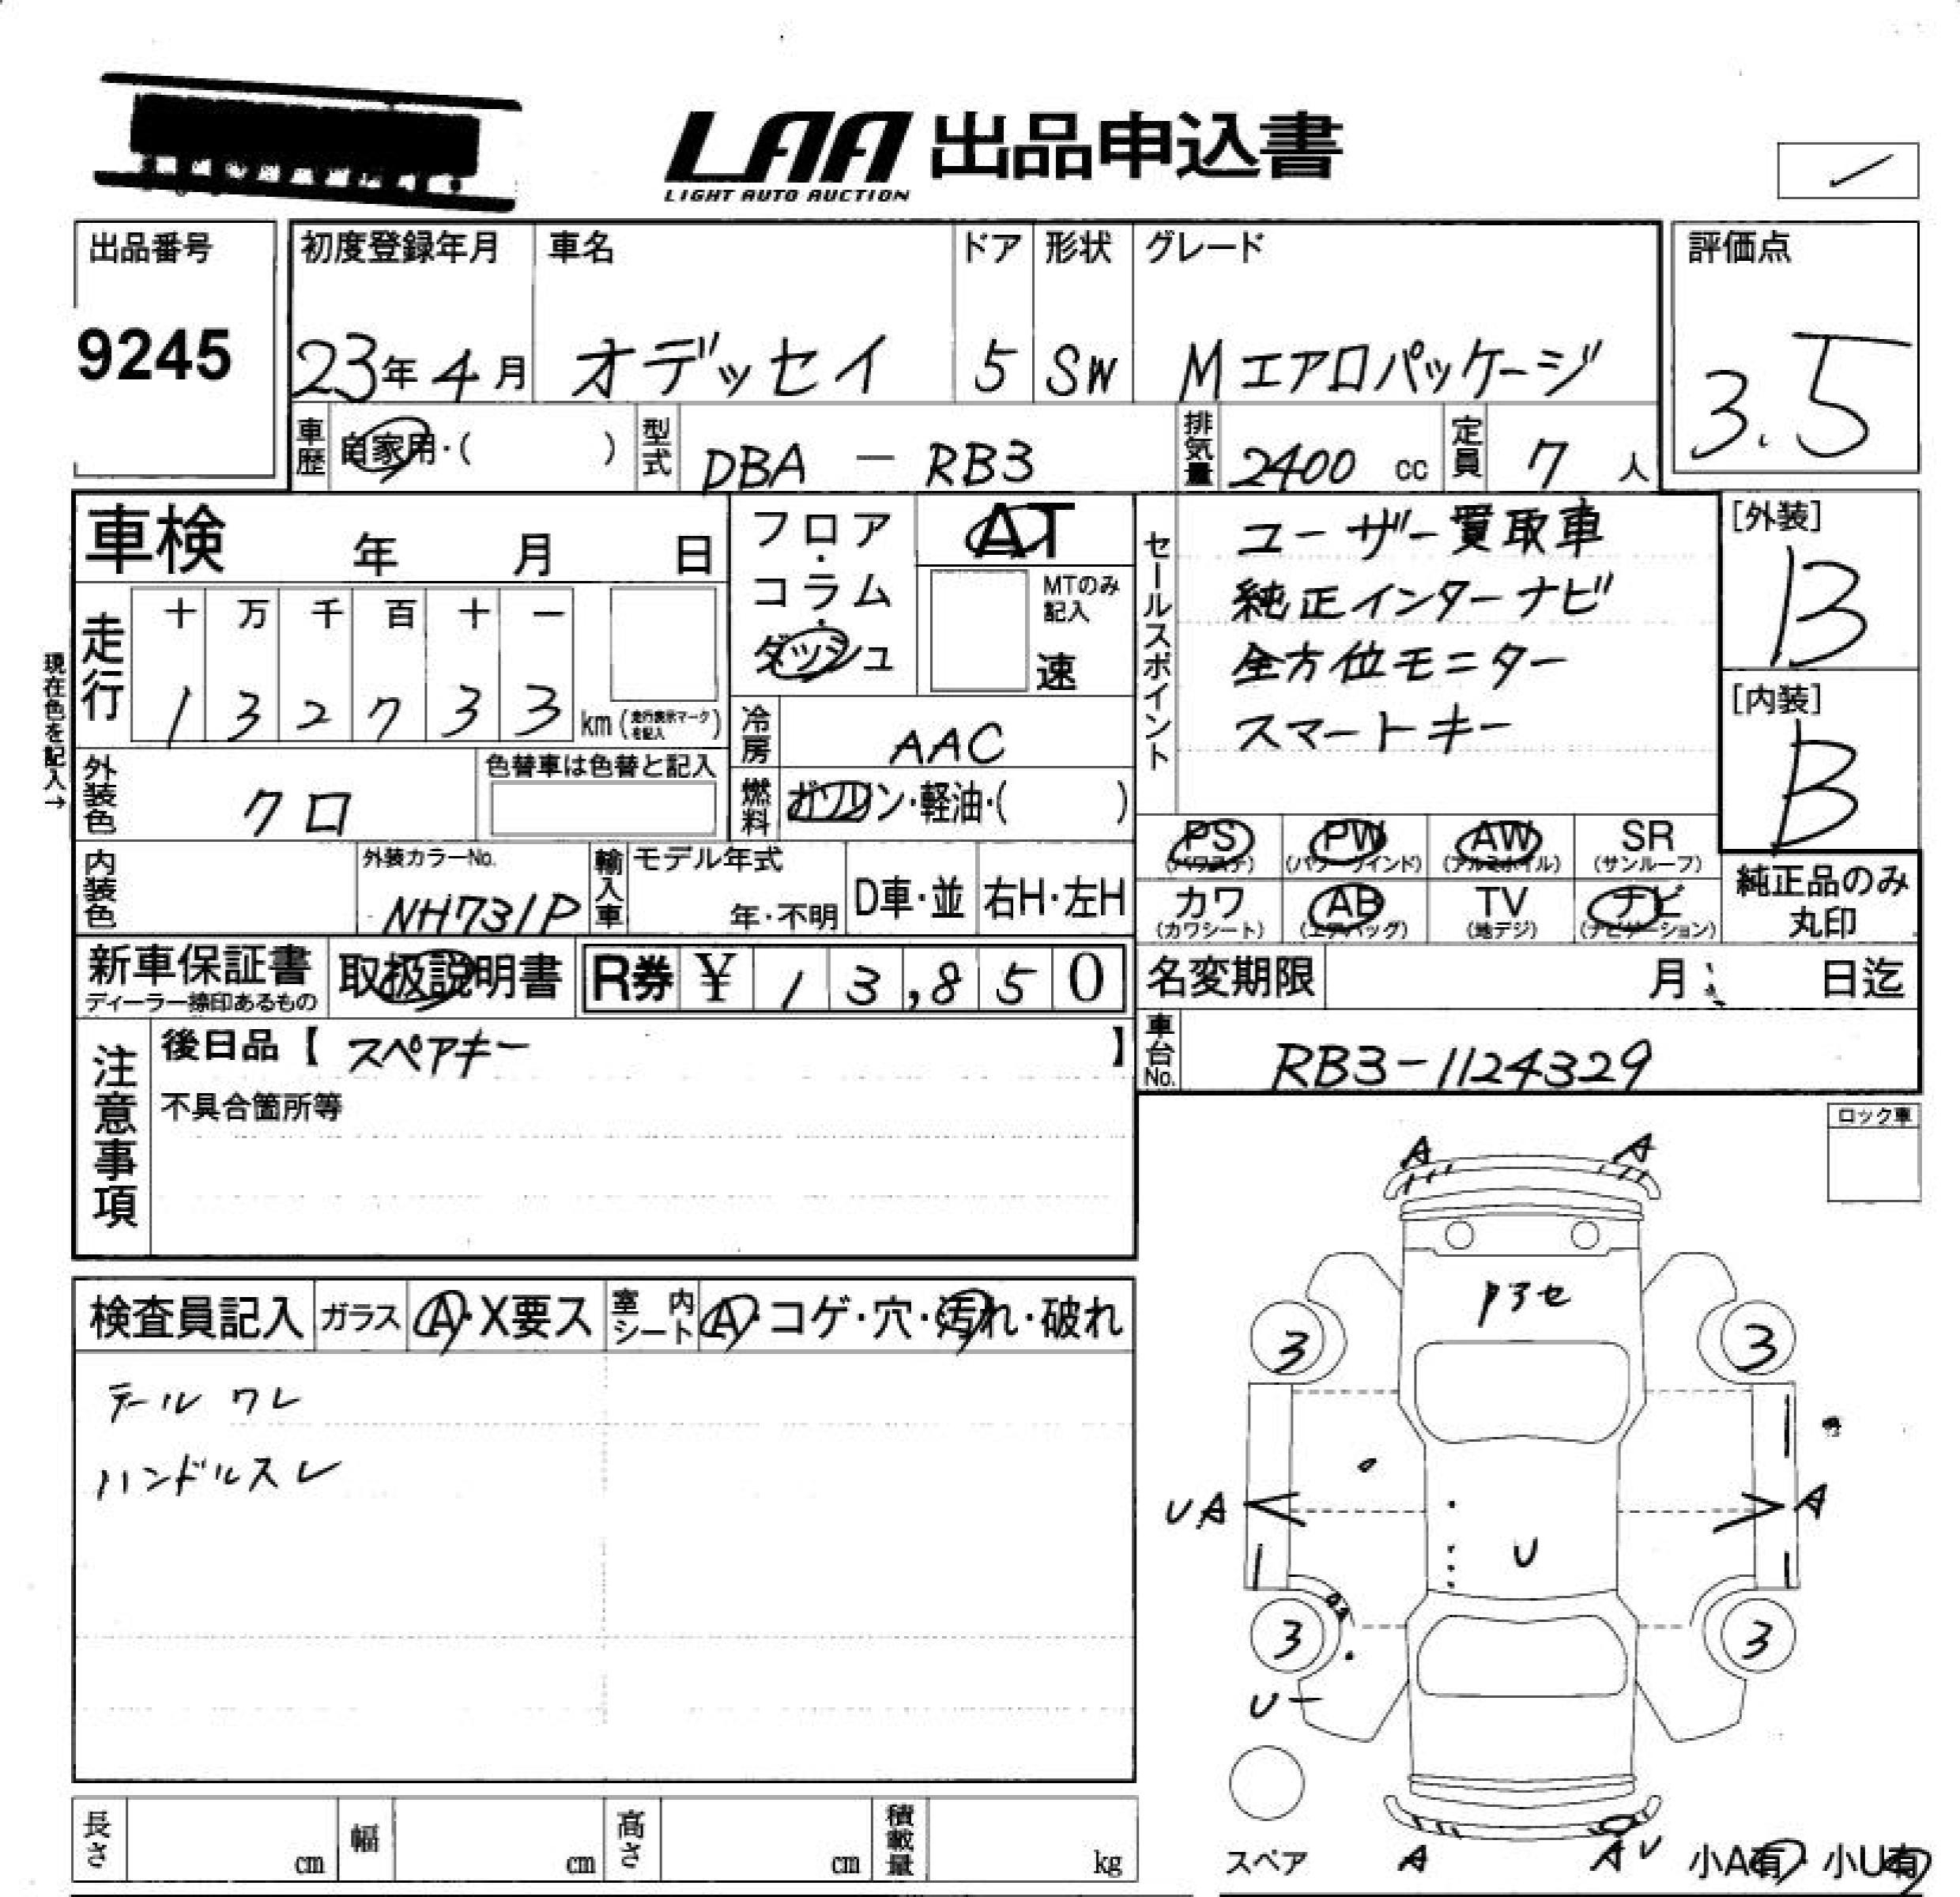 LAA 出品申込書
LIGHT AUTO AUCTION
出品番号
9245
初度登録年月
23年4月
車名
オデッセイ
ドア
5
形状
SW
グレード
Mエアロパッケージ
評価点
3.5
車歴
自家用・( )
型式
DBA － RB3
排気量
2400 cc
定員
7 人
車検 年 月 日
フロア・コラム・ダッシュ
AT
MTのみ記入
速
セールスポイント
ユーザー買取車
純正インターナビ
全方位モニター
スマートキー
[外装]
B
[内装]
B
現在色を記入→
走行
十 万 千 百 十 一
1 3 2 7 3 3 km (走行表示マークを記入)
冷房
AAC
外装色
クロ
色替車は色替と記入
燃料
ガソリン・軽油・( )
PS (パワステ)
PW (パワーウインド)
AW (アルミホイル)
SR (サンルーフ)
カワ (カワシート)
AB (エアバッグ)
TV (地デジ)
ナビ (ナビゲーション)
純正品のみ丸印
内装色
外装カラーNo.
NH731P
輸入車
モデル年式
年・不明
D車・並
右H・左H
新車保証書
ディーラー捺印あるもの
取扱説明書
R券 ¥ 13,850
名変期限 月 日迄
車台No.
RB3-1124329
注意事項
後日品【 スペアキー 】
不具合箇所等
ロック車
検査員記入
ガラス
A・X要ス
室内シート
A・コゲ・穴・汚れ・破れ
テール ワレ
ハンドルスレ
A A
3 3
UA A
U
3 3
U
A AU
スペア
小A有・小U有
長さ cm
幅 cm
高さ cm
積載量 kg